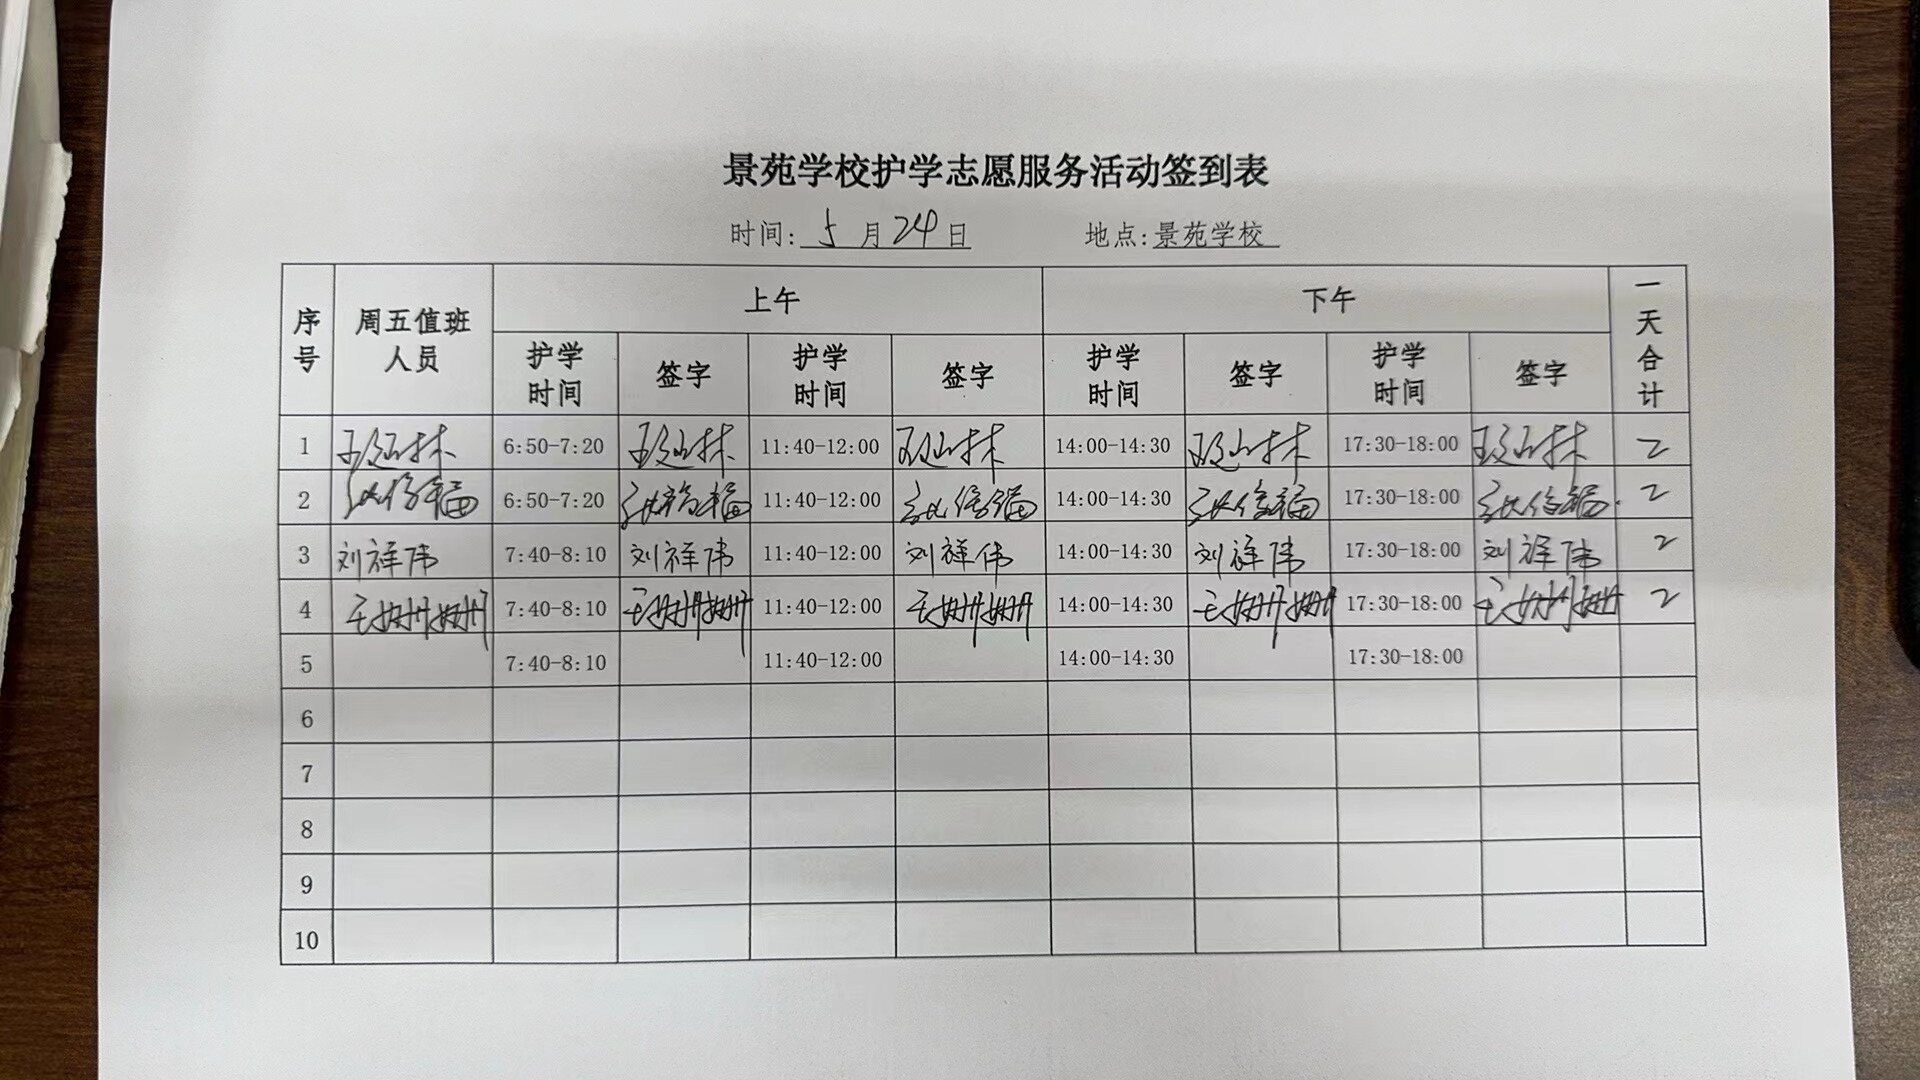 景苑学校护学志愿服务活动签到表
时间: 5 月 24 日 地点: 景苑学校
序号 周五值班人员 上午 下午 一天合计
护学时间 签字 护学时间 签字 护学时间 签字 护学时间 签字
1 6:50-7:20 11:40-12:00 14:00-14:30 17:30-18:00 2
2 6:50-7:20 11:40-12:00 14:00-14:30 17:30-18:00 2
3 刘祥伟 7:40-8:10 刘祥伟 11:40-12:00 刘祥伟 14:00-14:30 刘祥伟 17:30-18:00 刘祥伟 2
4 王姗姗 7:40-8:10 王姗姗 11:40-12:00 王姗姗 14:00-14:30 王姗姗 17:30-18:00 王姗姗 2
5 7:40-8:10 11:40-12:00 14:00-14:30 17:30-18:00
6
7
8
9
10